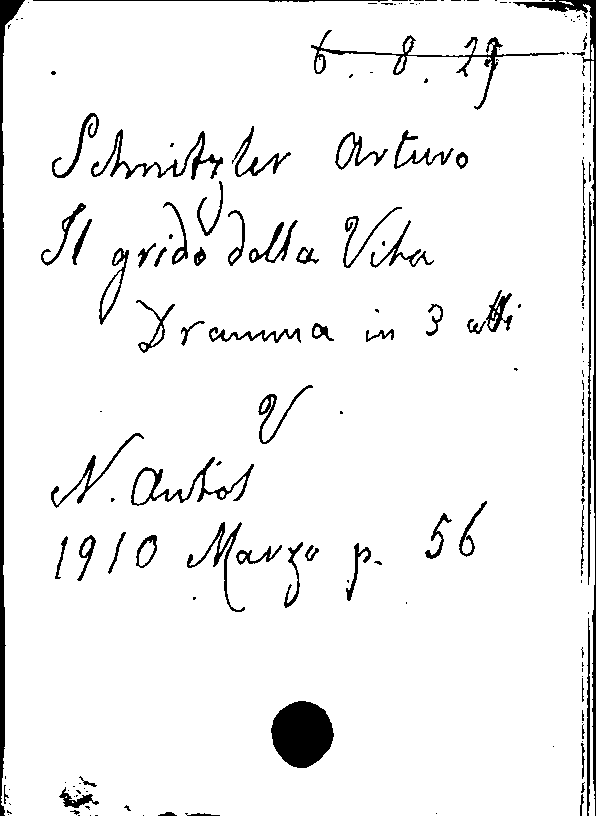 6. 8. 29
Schnitzler Arturo
Il grido della Vita
Dramma in 3 atti
V
N. Antol
1910 Marzo p. 56